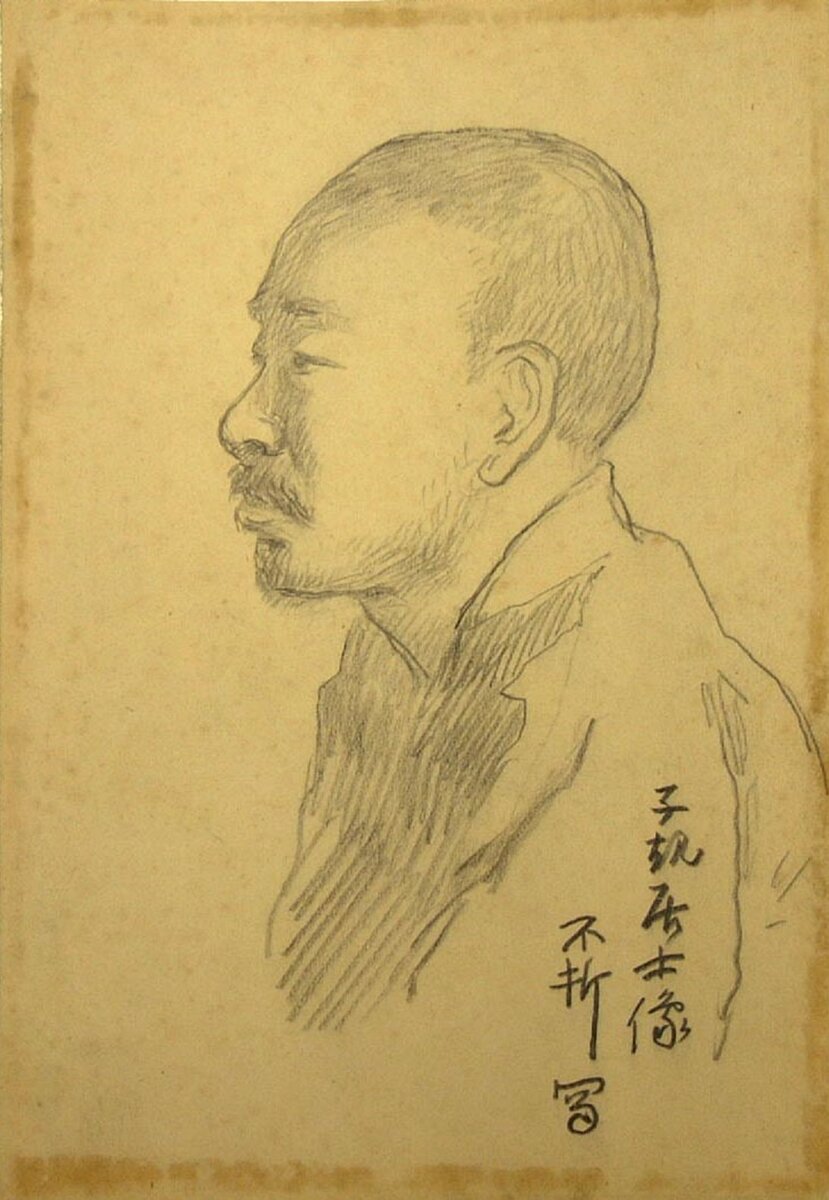 子規居士像
不折写